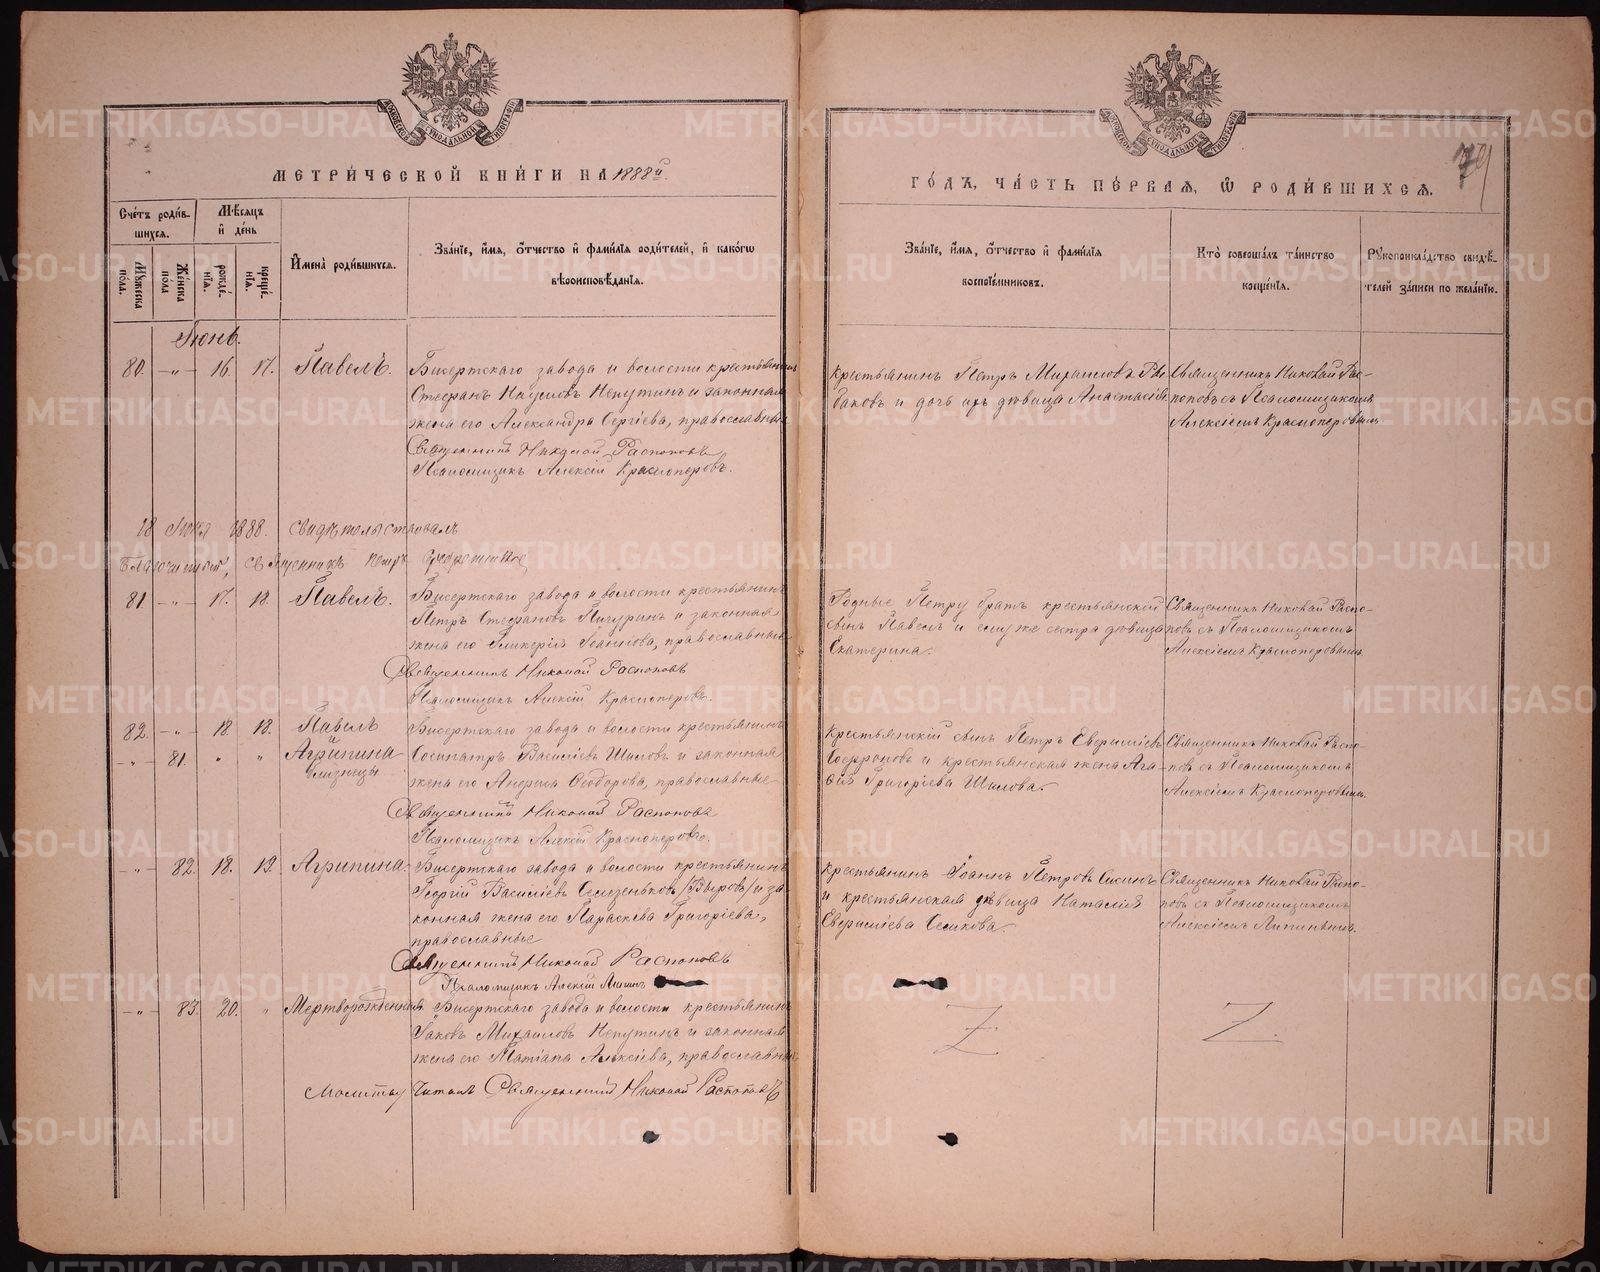 МОСКОВСКОЙ СѴНОДАЛЬНОЙ ТИПОГРАФІИ
МОСКОВСКОЙ СѴНОДАЛЬНОЙ ТИПОГРАФІИ
МЕТРИ́ЧЕСКОЙ КНИ́ГИ НА 1888й
ГО́ДЪ, ЧА́СТЬ ПЕ́РВАЯ, Ѡ РОДИ́ВШИХСЯ.
79
Сче́тъ роди́в-
шихся.
Мѣсяцъ
и день
Мꙋжеска пола.
Же́нска пола
рожде́нїя.
креще́нїя.
И҆мена̀ роди́вшихся.
Зва́нїе, и҆́мя, о҆́тчество и҆ фами́лїѧ роди́телей, и҆ како́гѡ
вѣроисповѣ́данїѧ.
Зва́нїе, и҆́мя, о҆́тчество и҆ фами́лїѧ
воспрїе́мниковъ.
Кто̀ соверша́лъ та́инство
креще́нїѧ.
Рꙋкоприкла́дство свидѣ́-
телей за́писи по жела́нїю.
Іюнь.
80. -"- 16. 17. Павелъ.
Бисертскаго завода и волости крестьянинъ
Стефанъ Наумовъ Непутинъ и законная
жена его Александра Сергіева, православные
Священникъ Николай Распоповъ
Псаломщикъ Алексій Красноперовъ.
Крестьянинъ Петръ Михаиловъ Ры-
баковъ и дочь ихъ дѣвица Анастасія
Священникъ Николай Рас-
поповъ съ Псаломщикомъ
Алексіемъ Красноперовымъ
18 Іюня 1888. свидѣтельствовалъ
Благочинный, священникъ Петръ
81 -"- 17. 18. Павелъ.
Бисертскаго завода и волости крестьянинъ
Петръ Стефановъ Пичугинъ и законная
жена его Гликерія Іоаннова, православные
Священникъ Николай Распоповъ
Псаломщикъ Алексій Красноперовъ.
Родные Петру братъ крестьянскій
сынъ Павелъ и ему же сестра дѣвица
Екатерина.
Священникъ Николай Распо-
повъ съ Псаломщикомъ
Алексіемъ Красноперовымъ
82. -"- 18. 18. Павелъ
-"- 81. " " Агрипина
близнецы
Бисертскаго завода и волости крестьянинъ
Сосипатръ Василіевъ Шиловъ и законная
жена его Ѳеодорова, православные
Священникъ Николай Распоповъ
Псаломщикъ Алексій Красноперовъ.
Крестьянскій сынъ Петръ
Софроновъ и крестьянская жена Ага-
Григоріева Шилова.
Священникъ Николай Распо-
повъ съ Псаломщикомъ
Алексіемъ Красноперовымъ.
-"- 82. 18. 19. Агрипина.
Бисертскаго завода и волости крестьянинъ
Георгій Василіевъ Селезеньковъ /Выровъ/ и за-
конная жена его Параскева Григоріева,
православные
Священникъ Николай Распоповъ
Псаломщикъ Алексій
Крестьянинъ Іоаннъ Петровъ
и крестьянская дѣвица Наталия
Священникъ Николай Распо-
повъ съ Псаломщикомъ
Алексіемъ
-"- 83. 20. " Мертворожденная
Бисертскаго завода и волости крестьянинъ
Іаковъ Михаиловъ Непутинъ и законная
жена его Татіана Алексіева, православные
Z Z
Молитву Читалъ Священникъ Николай Распоповъ
METRIKI.GASO-URAL.RU